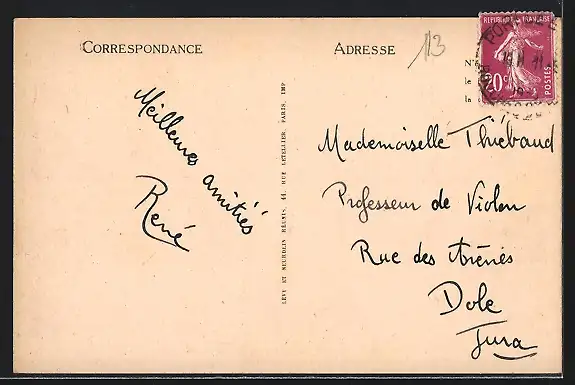 CORRESPONDANCE
ADRESSE
13
REPUBLIQUE FRANÇAISE
20c
POSTES
Nº
le
la
Meilleures amitiés
René
LEVY ET NEURDEIN REUNIS, 44, RUE LETELLIER, PARIS, IMP
Mademoiselle Thiébaud
Professeur de Violon
Rue des Arènes
Dole
Jura